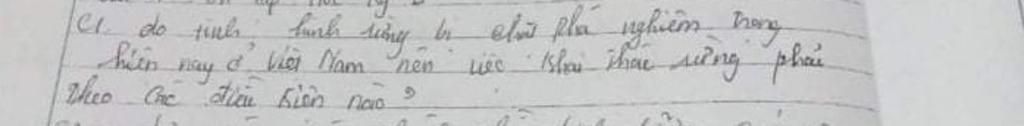 C1. do tình hình rừng bị chặt phá nghiêm trọng
hiện nay ở Việt Nam nên việc khai thác rừng phải
theo các điều kiện nào?